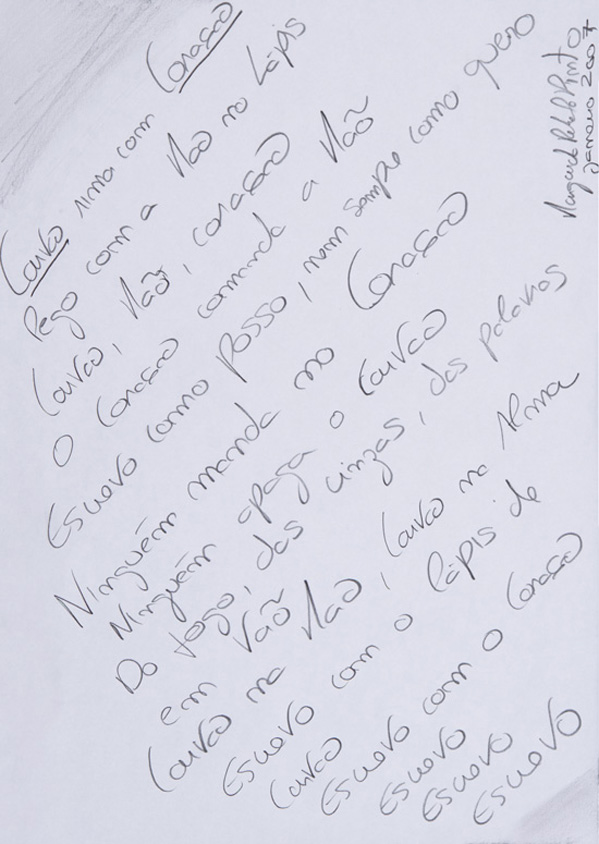 Carvão rima com Coração
Pego com a Mão no Lápis
Carvão, Mão, coração
O Coração comanda a Mão
Escrevo como posso, nem sempre como quero
Ninguém manda no Coração
Ninguém apaga o Carvão
Do fogo, das cinzas, das palavras
em Vão
Carvão na Mão, Carvão na Alma
Escrevo com o lápis de
Carvão
Escrevo com o Coração
Escrevo
Escrevo
Escrevo
Pinto
Janeiro 2007